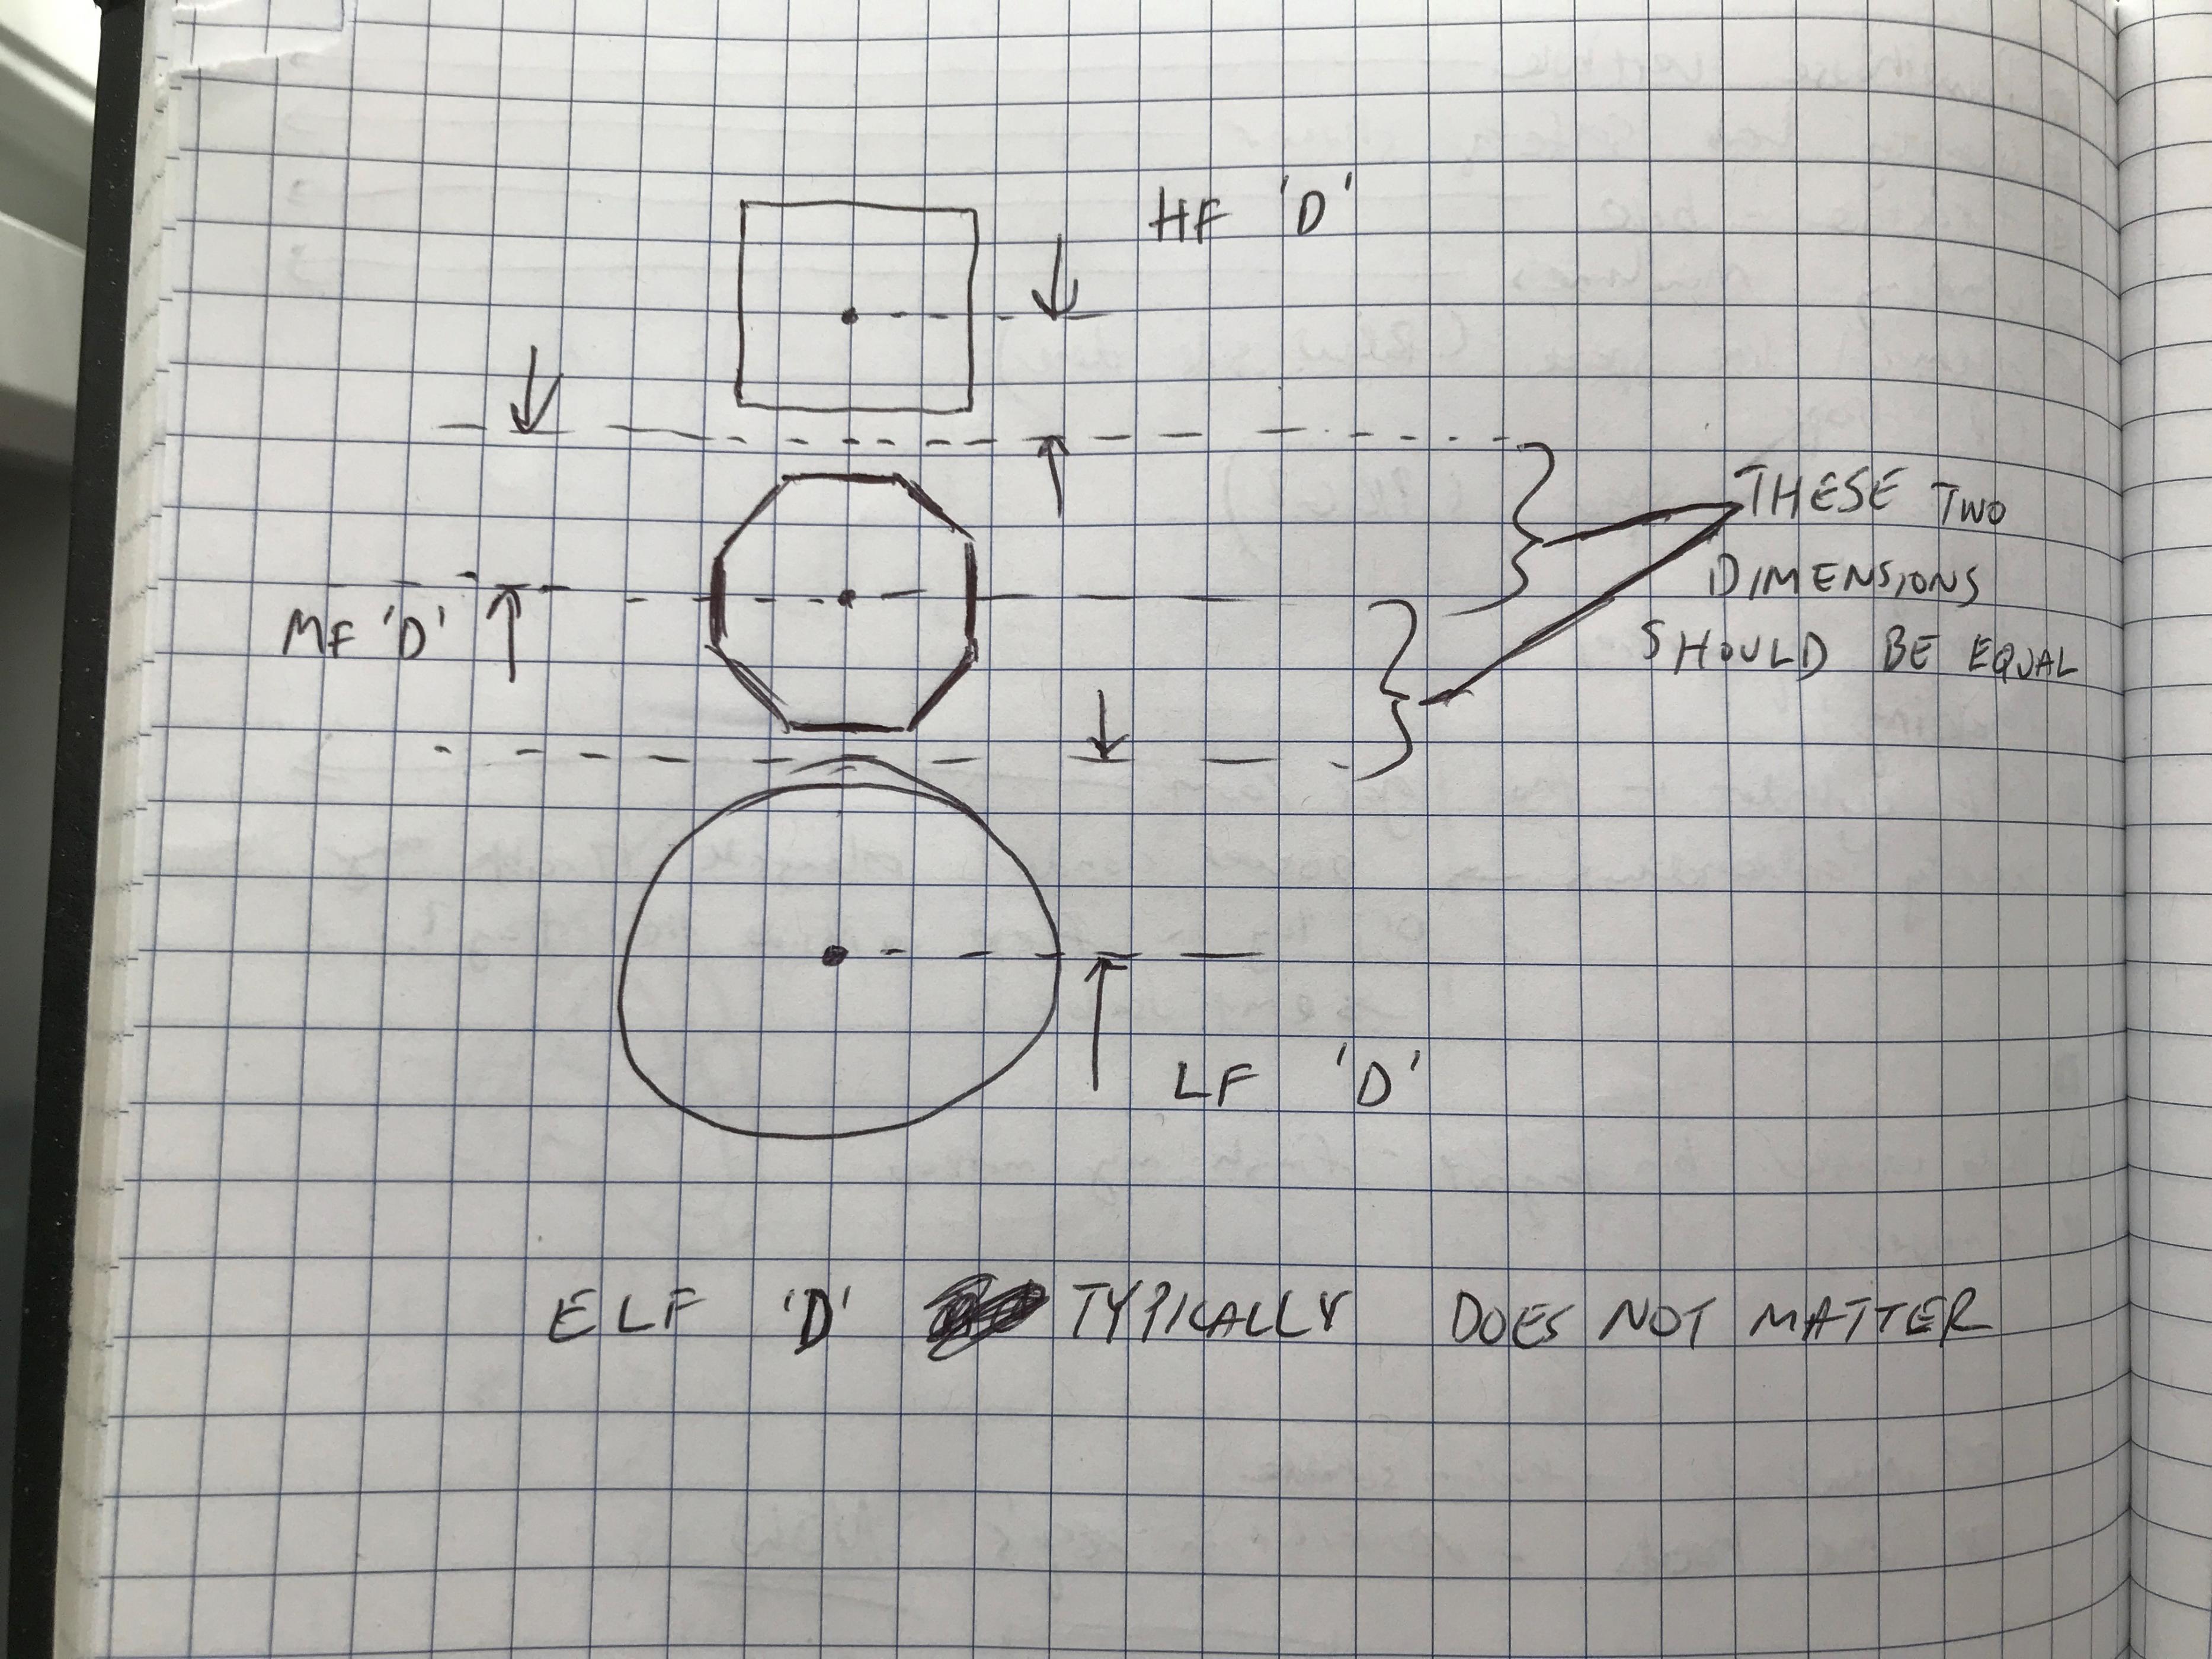 HF 'D'
THESE TWO
DIMENSIONS
SHOULD BE EQUAL
MF 'D'
LF 'D'
ELF 'D' TYPICALLY DOES NOT MATTER